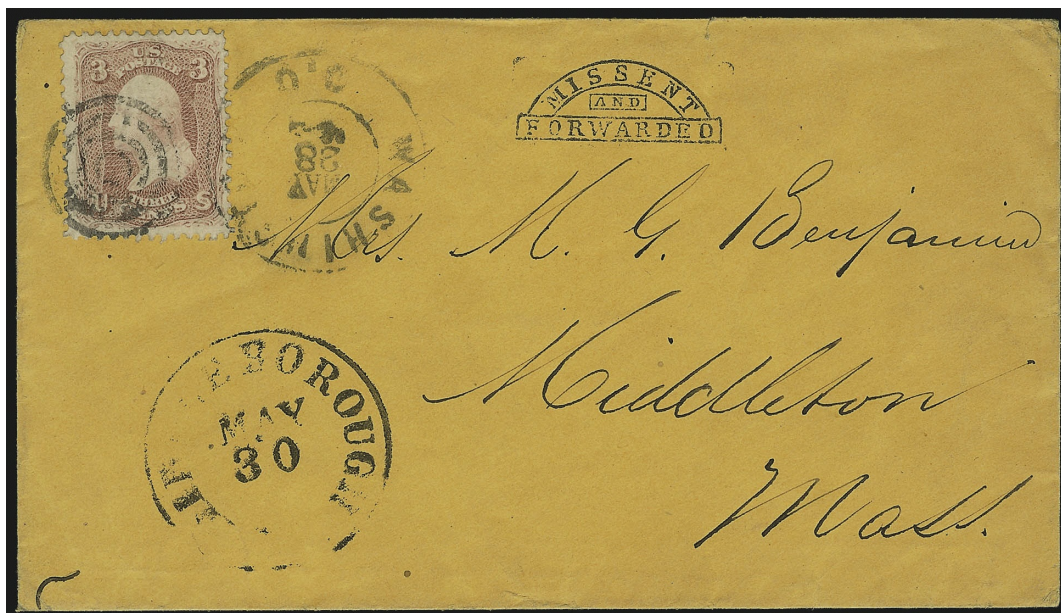 U.S.
POSTAGE
3 3
THREE
CENTS
WASHIN D.C.
MAY
28
MISSENT
AND
FORWARDED
Mrs. M. G. Benjamin
Middleton
Mass.
BOROUGH
MAY
30